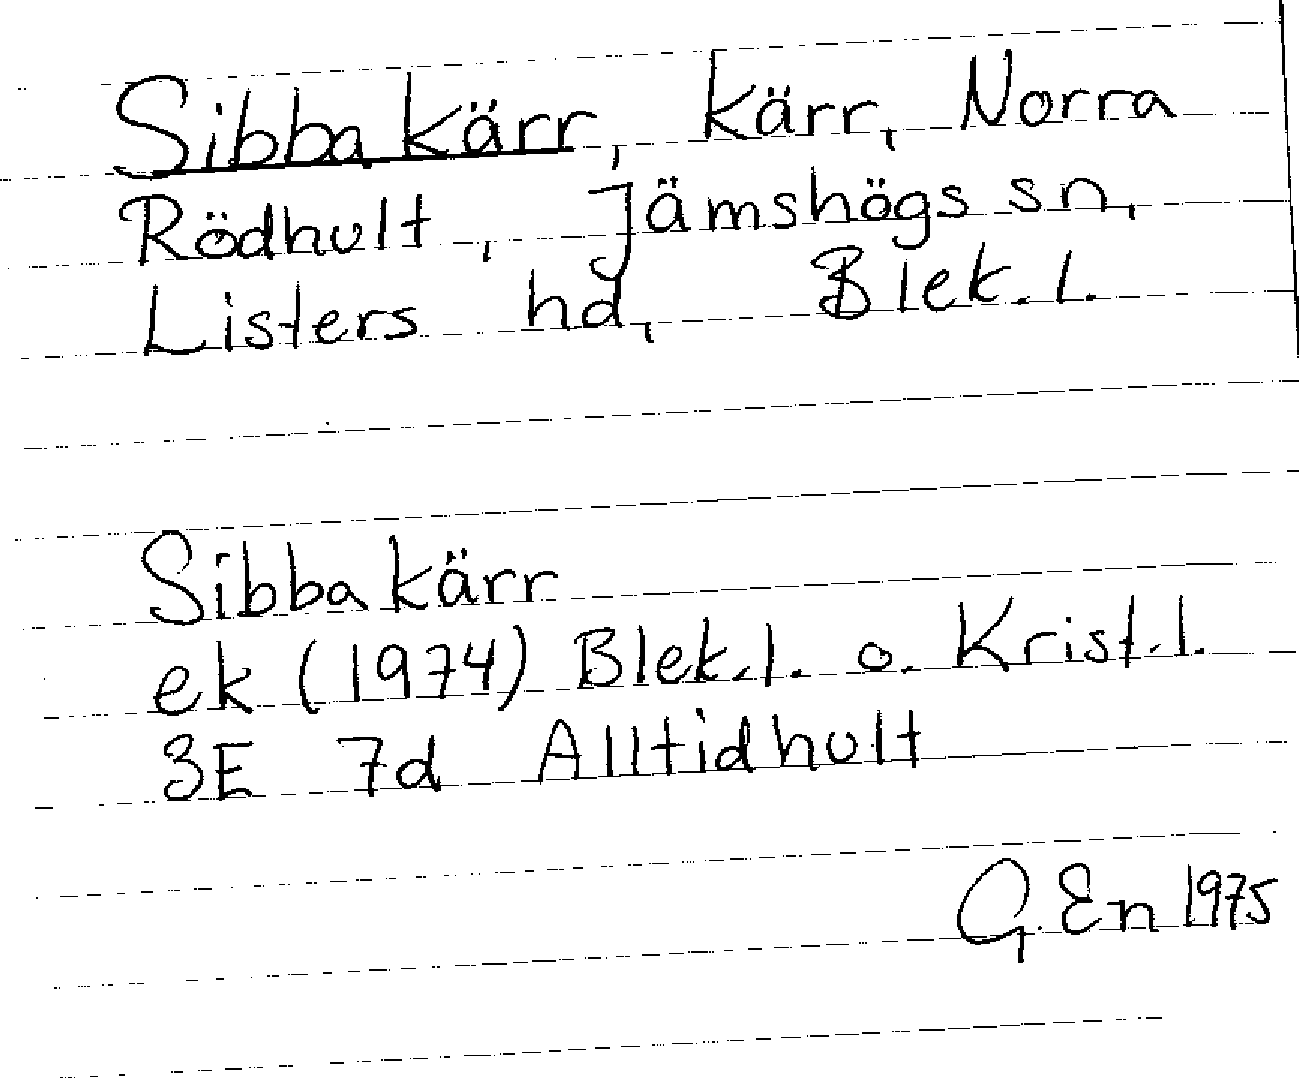 Sibbakärr, kärr, Norra
Rödhult, Jämshögs sn,
Listers hd, Blek.l.
Sibbakärr
ek (1974) Blek.l. o. Krist.l.
3E 7d Alltidhult
G.En 1975